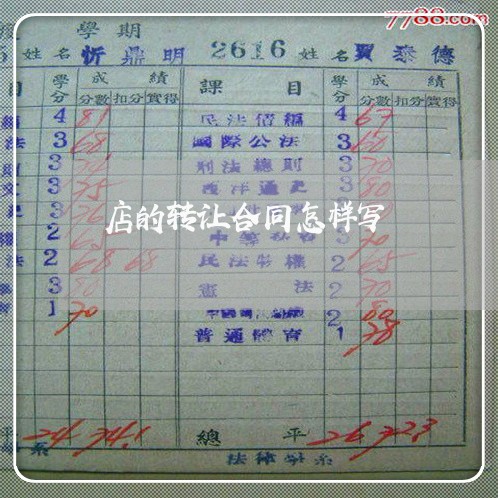 7788.com
學期
姓名 忻鼎明 2616 姓名 賈泰德
目 學分 成績 課目 學分 成績
分數 扣分 實得 分數 扣分 實得
4 81 民法債編 4 67
法 3 68 國際公法 3 60
3 刑法總則 3 70
3 75 西洋通史 3 80
店的转让合同怎样写
2 中等會計 3 70
法 2 68 68 民法物權 2 65
3 80 憲法 2 70
1 70 2 80
普通體育 1 78
平 24 74.1 總平 26 72.3
系 法律學系